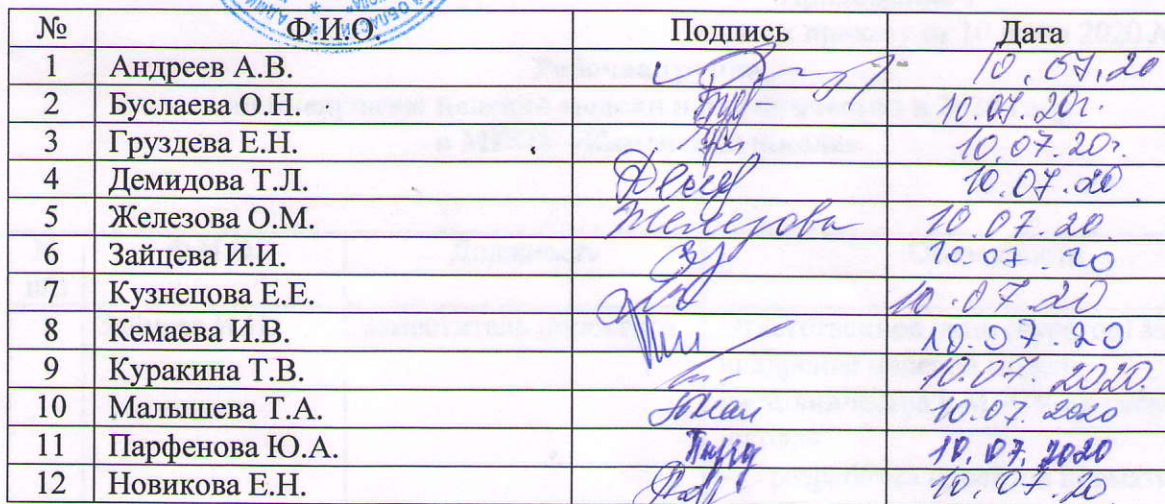 № Ф.И.О. Подпись Дата
1 Андреев А.В. 10.07.20
2 Буслаева О.Н. 10.07.20г.
3 Груздева Е.Н. 10.07.20г.
4 Демидова Т.Л. 10.07.20
5 Железова О.М. Железова 10.07.20
6 Зайцева И.И. 10.07.20
7 Кузнецова Е.Е. 10.07.20
8 Кемаева И.В. 10.07.20
9 Куракина Т.В. 10.07.2020.
10 Малышева Т.А. 10.07.2020
11 Парфенова Ю.А. 10.07.2020
12 Новикова Е.Н. 10.07.20